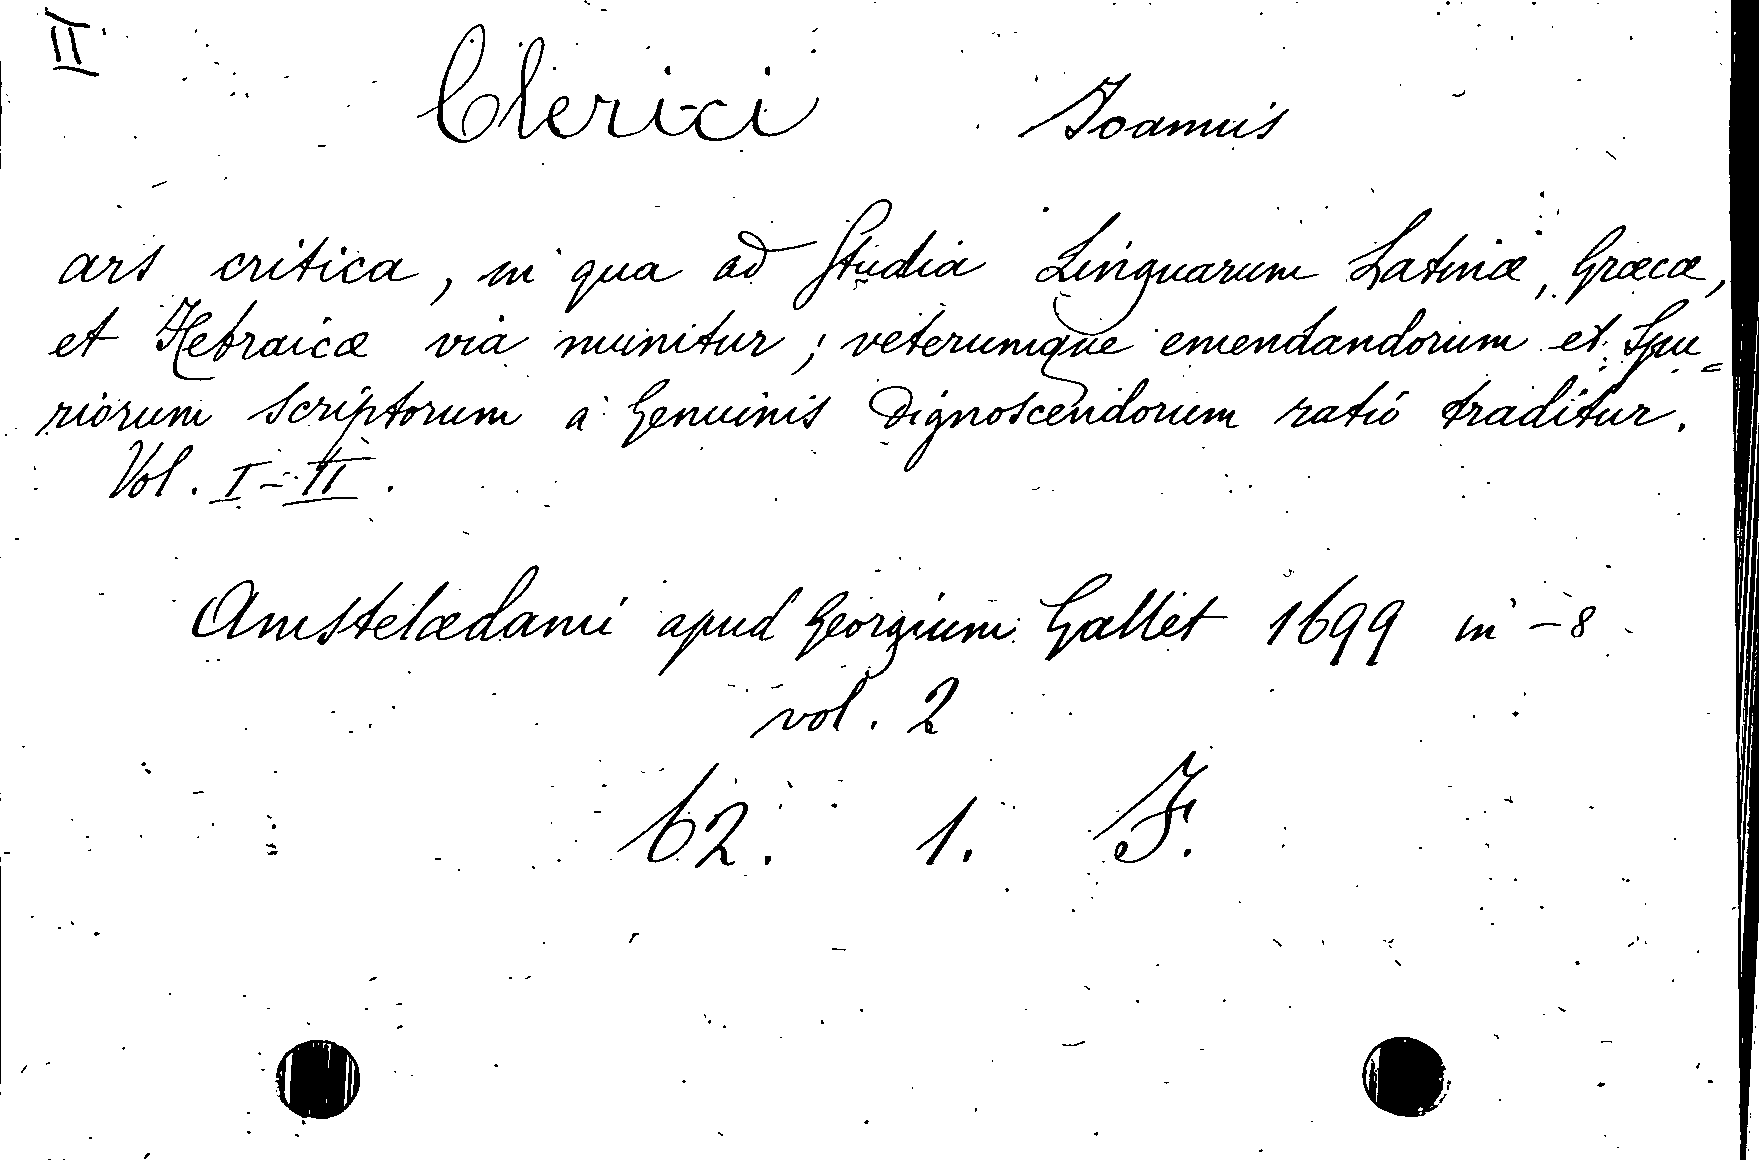 II
Clerici Joannis
ars critica, in qua ad Studia Linguarum Latinæ, Græcæ,
et Hebraicæ via munitur; veterumque emendandorum et Spu=
riorum Scriptorum a Genuinis Dignoscendorum ratio traditur.
Vol. I-II.
Amstelædami apud Georgium Gallet 1699 in -8
vol. 2
62. 1. F.